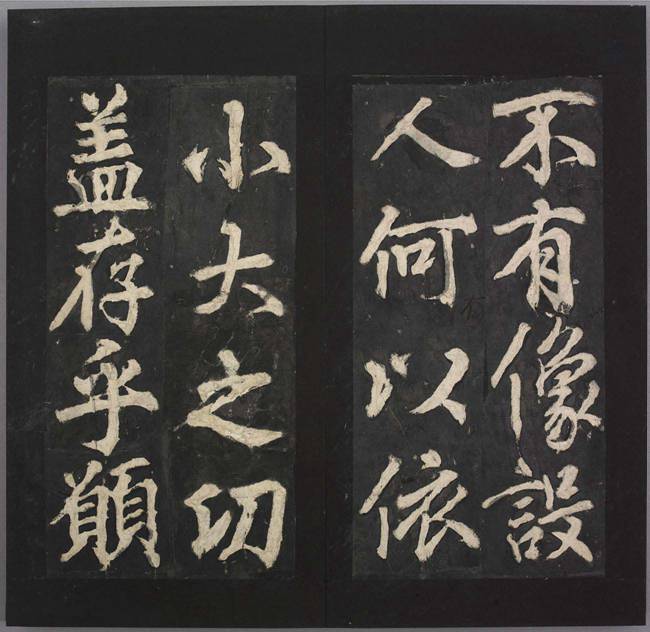 不有像設
人何以依
小大之功
盖存乎願